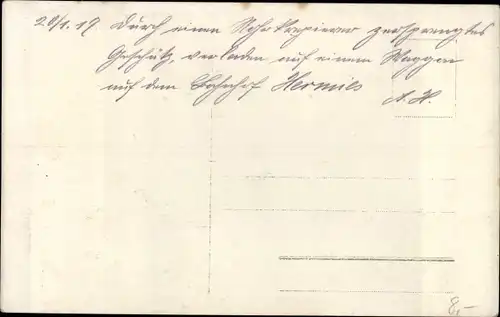 20/1.19 Durch einen Rohrkrepierer zersprengtes
Geschütz, verladen auf einem Waggon
auf dem Bahnhof Hermies
A. H.
8,-